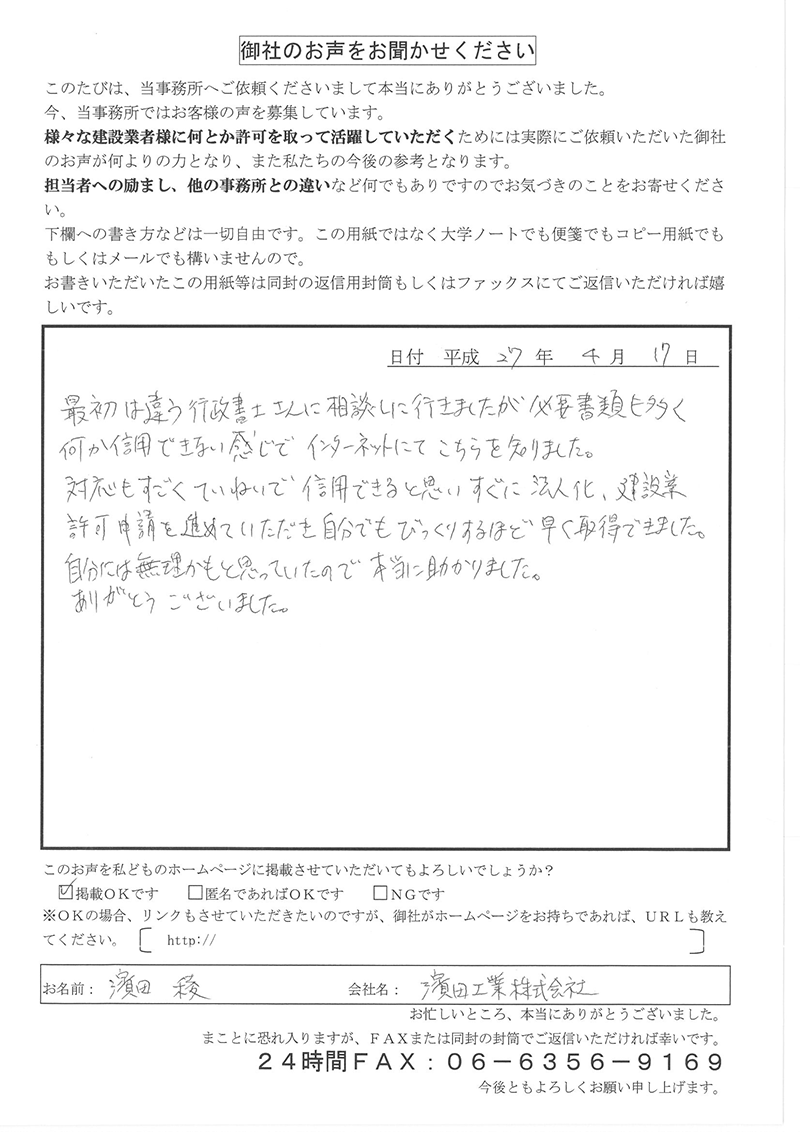 御社のお声をお聞かせください
このたびは、当事務所へご依頼くださいまして本当にありがとうございました。
今、当事務所ではお客様の声を募集しています。
様々な建設業者様に何とか許可を取って活躍していただくためには実際にご依頼いただいた御社
のお声が何よりの力となり、また私たちの今後の参考となります。
担当者への励まし、他の事務所との違いなど何でもありですのでお気づきのことをお寄せくださ
い。
下欄への書き方などは一切自由です。この用紙ではなく大学ノートでも便箋でもコピー用紙でも
もしくはメールでも構いませんので。
お書きいただいたこの用紙等は同封の返信用封筒もしくはファックスにてご返信いただければ嬉
しいです。
日付 平成 27 年 4 月 17 日
最初は違う行政書士さんに相談しに行きましたが必要書類も多く
何か信用できない感じでインターネットにてこちらを知りました。
対応もすごくていねいで信用できると思いすぐに法人化、建設業
許可申請を進めていただき自分でもびっくりするほど早く取得できました。
自分には無理かもと思っていたので本当に助かりました。
ありがとうございました。
このお声を私どものホームページに掲載させていただいてもよろしいでしょうか？
☑掲載ＯＫです □匿名であればＯＫです □ＮＧです
※ＯＫの場合、リンクもさせていただきたいのですが、御社がホームページをお持ちであれば、ＵＲＬも教え
てください。 [ http:// ]
お名前： 濱田 稜 会社名： 濱田工業株式会社
お忙しいところ、本当にありがとうございました。
まことに恐れ入りますが、ＦＡＸまたは同封の封筒でご返信いただければ幸いです。
２４時間ＦＡＸ：０６－６３５６－９１６９
今後ともよろしくお願い申し上げます。